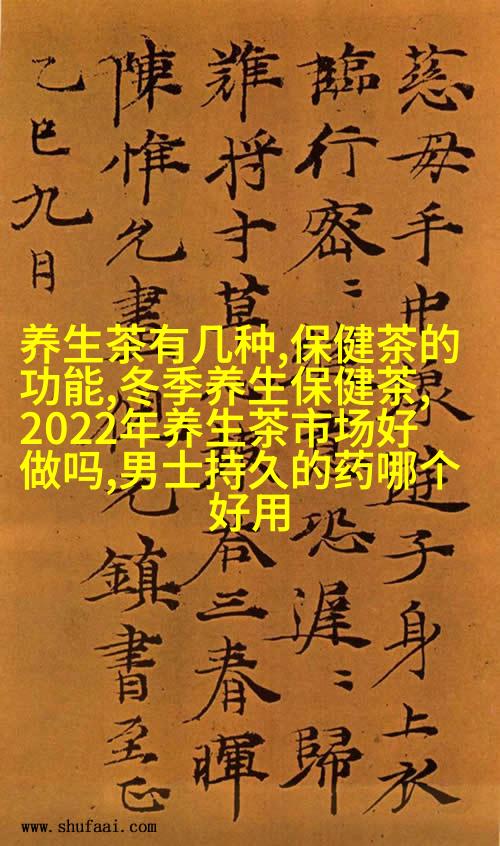 慈母手中線遊子身上衣
臨行密〻恐遲〻歸
難将寸草心答三春暉
陳惟允畫允鎮書至正
乙巳九月
养生茶有几种,保健茶的
功能,冬季养生保健茶,
2022年养生茶市场好
做吗,男士持久的药哪个
好用
www.shufaai.com